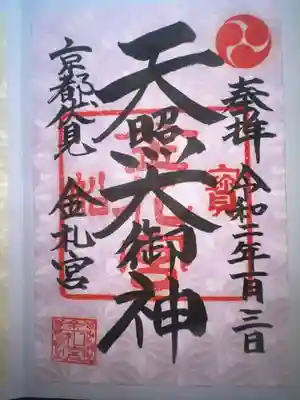 奉拝 令和二年一月三日
天照大御神
京都伏見 金札宮